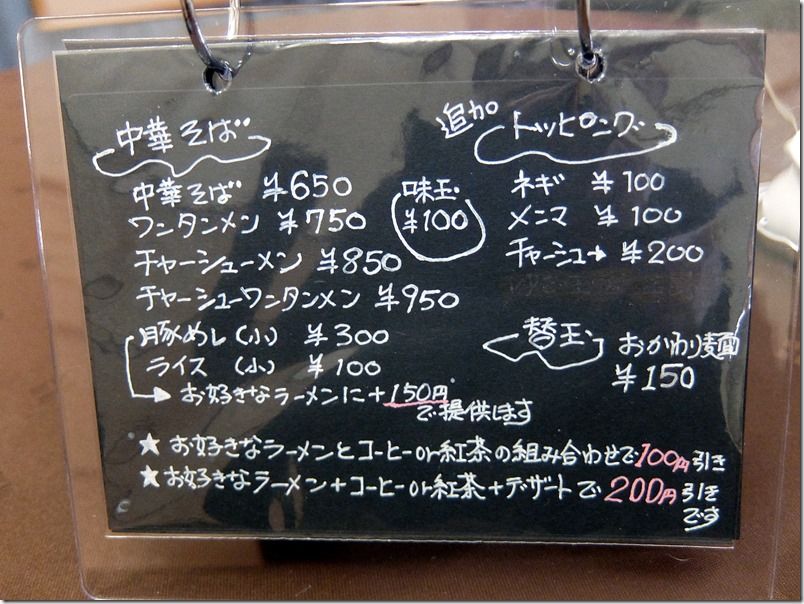 中華そば
中華そば ¥650
ワンタンメン ¥750
チャーシューメン ¥850
チャーシューワンタンメン ¥950
味玉
¥100
豚めし(小) ¥300
ライス (小) ¥100
お好きなラーメンに+150円
で提供します
追加 トッピング
ネギ ¥100
メンマ ¥100
チャーシュー ¥200
替玉 おかわり麺
¥150
★お好きなラーメンとコーヒーor紅茶の組み合わせで100円引き
★お好きなラーメン+コーヒーor紅茶+デザートで200円引き
です